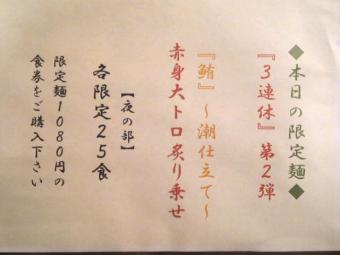 ◆本日の限定麺◆
『3連休』第2弾
『鮪』～潮仕立て～
赤身大トロ炙り乗せ
【夜の部】
各限定25食
限定麺1080円の
食券をご購入下さい